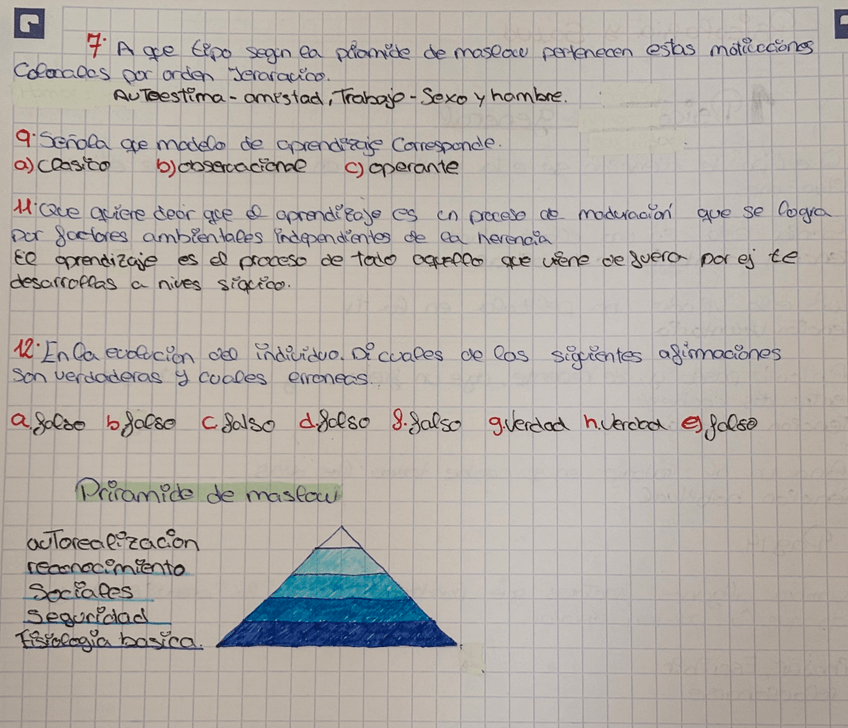 7. A que tipo segn la piramide de maslow pertenecen estas moticciones
Colocalas por orden Jeraracino.
AuToestima - amistad, Trabajo - Sexo y hambre.
9. Señala qe modelo de aprendizaje Corresponde.
a) clasico b) observacional c) operante
11. Que quiere decir que el aprendizaje es un proceso de maduración que se logra
por factores ambientales independientes de la herencia
El aprendizaje es el proceso de todo aquello que viene de fuera por ej te
desarrollas a nives síquico.
12. En la evolución del individuo. Di cuales de las siguientes afirmaciones
son verdaderas y cuales erroneas.
a. falso b falso c falso d. falso f. falso g. Verdad h. Verdad e) falso
Piramide de maslow
auTorealización
reconocimiento
Sociales
Seguridad
Fisiologia basica.